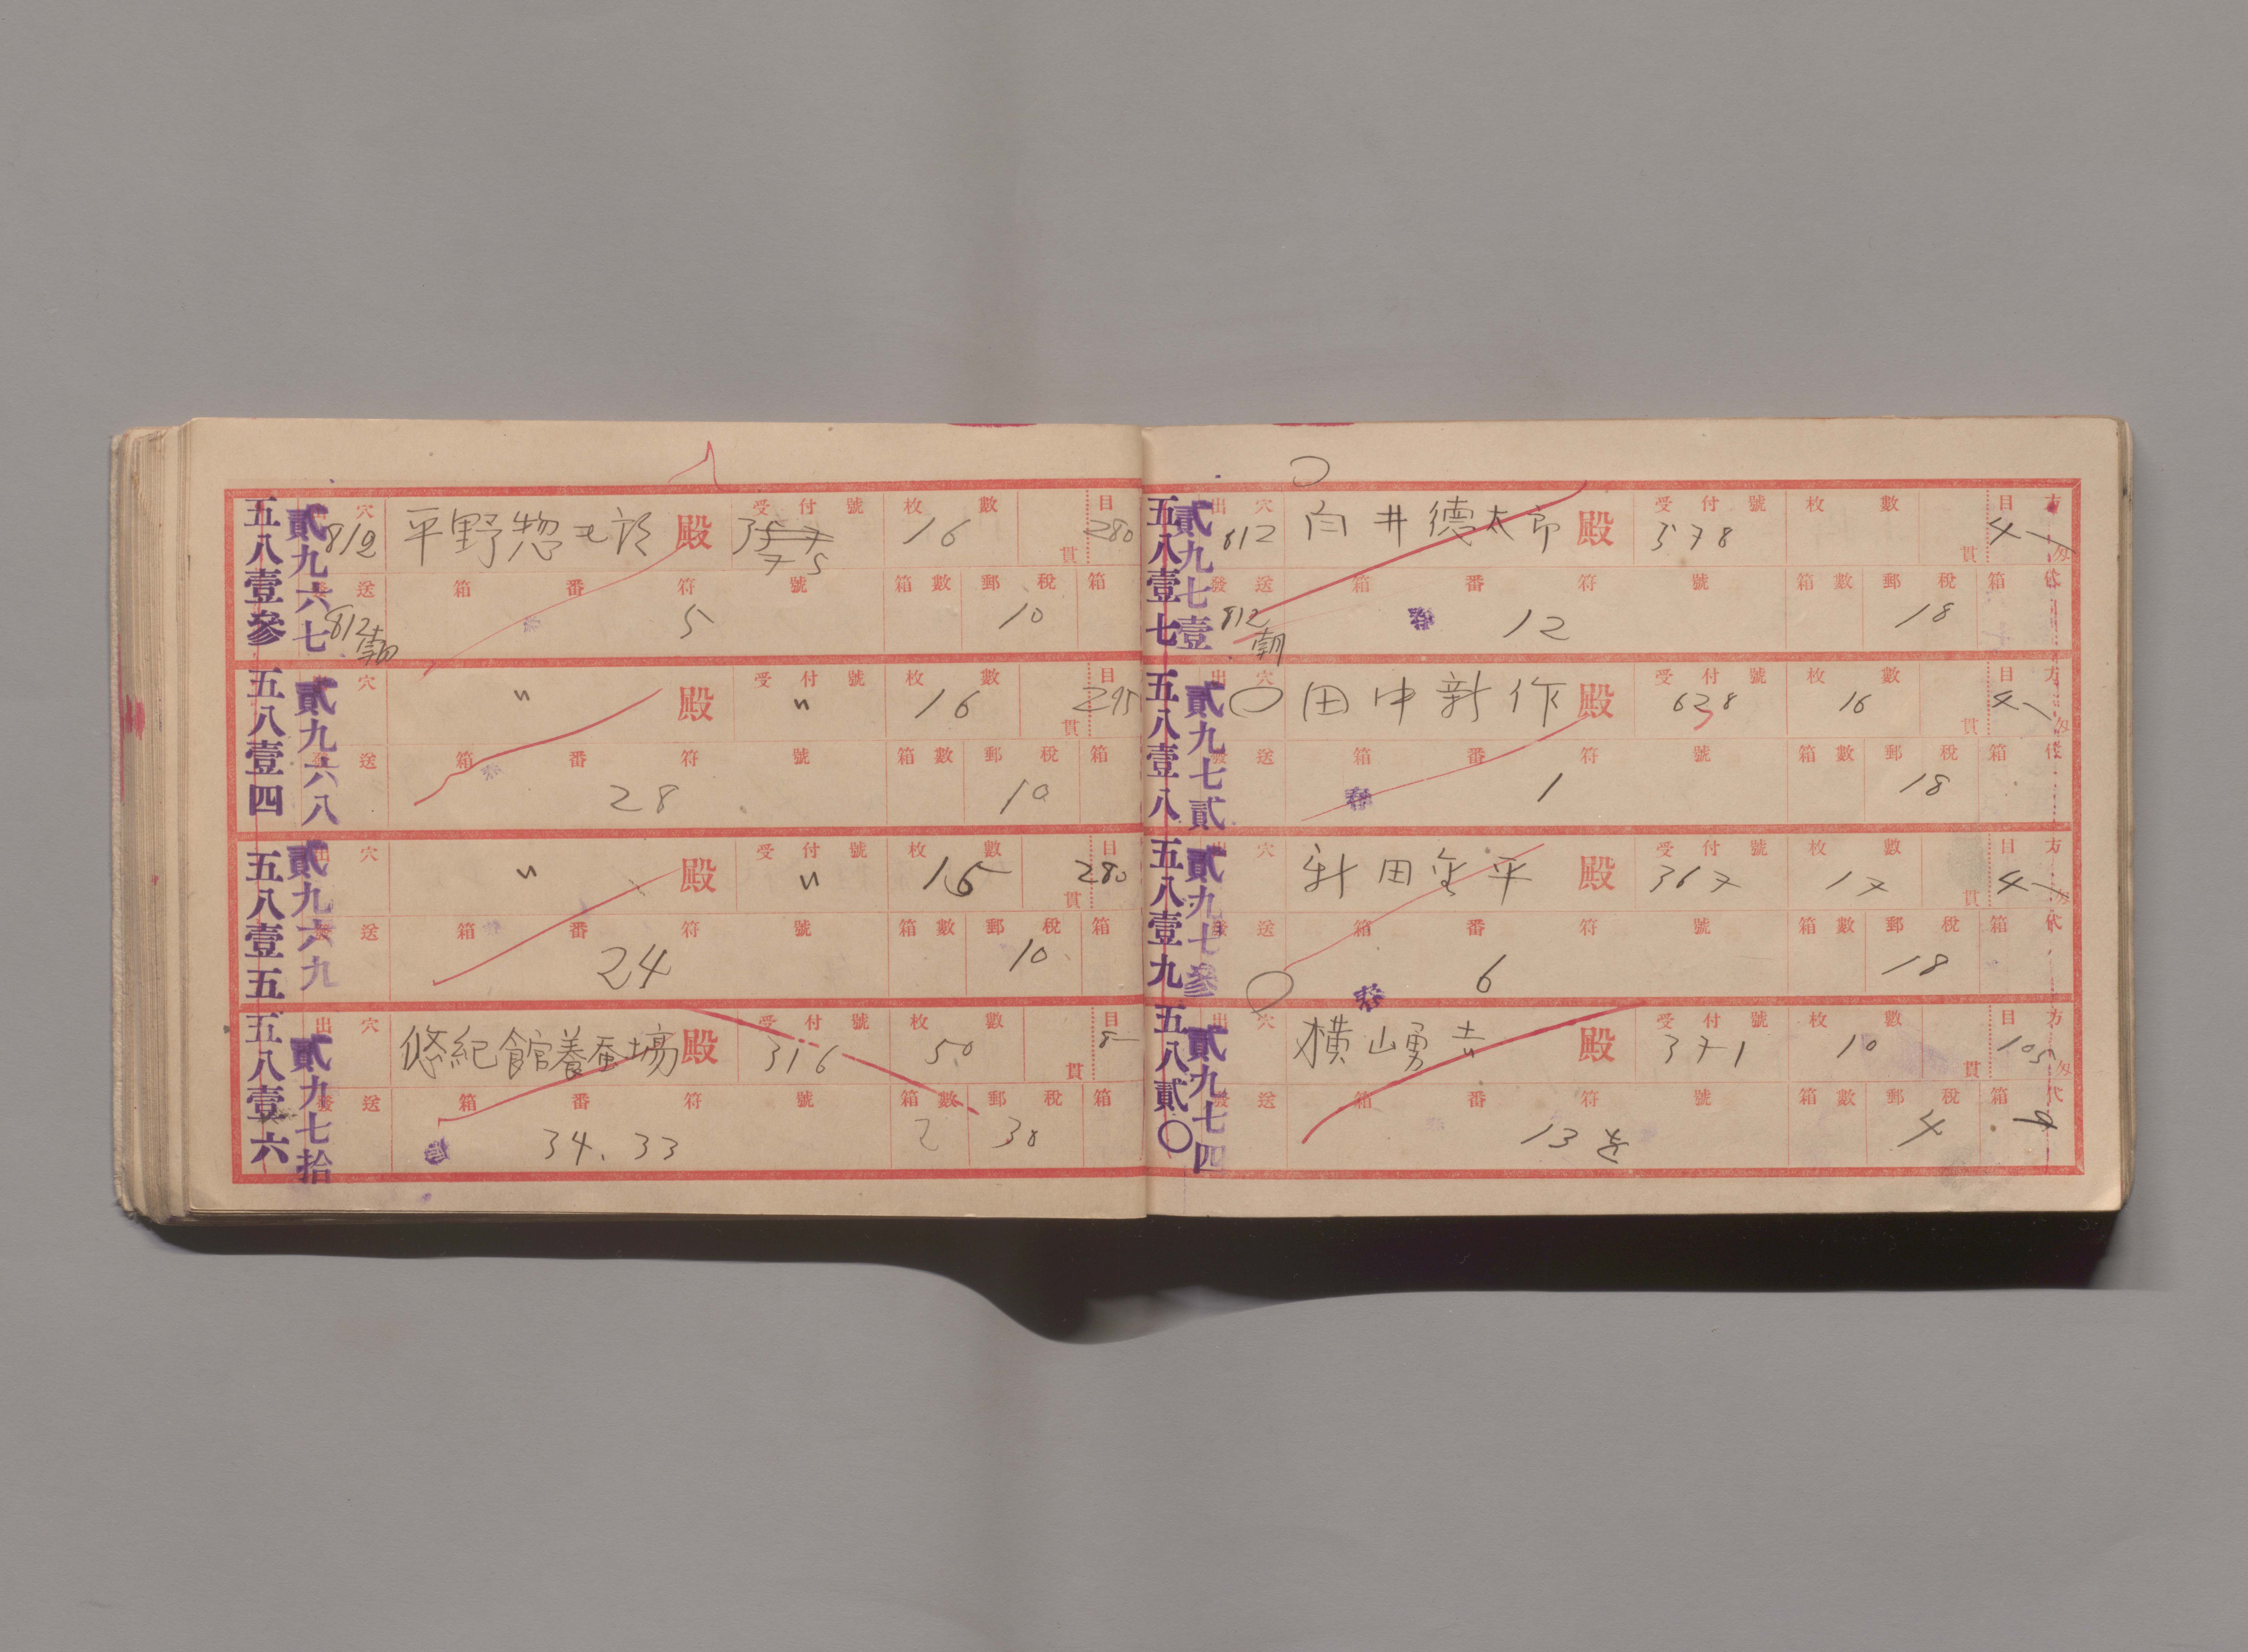 五八壹參 貳九六七 出穴 8/2 平野惣七郎 殿 受付號 75 枚數 16 貫 目 280
發送 8/2 朝 箱番符號 5 箱數 郵稅 10 箱
五八壹四 貳九六八 出穴 〃 殿 受付號 〃 枚數 16 貫 目 295
發送 箱番符號 28 箱數 郵稅 10 箱
五八壹五 貳九六九 出穴 〃 殿 受付號 〃 枚數 15 貫 目 280
發送 箱番符號 24 箱數 郵稅 10 箱
五八壹六 貳九七拾 出穴 悠紀館養蚕場 殿 受付號 316 枚數 50 貫 目 8
發送 箱番符號 34.33 箱數 2 郵稅 38 箱
五八壹七 貳九七壹 出穴 8/2 向井德太郎 殿 受付號 578 枚數 貫 目方 4 匁
發送 8/2 朝 箱番符號 12 箱數 郵稅 18 箱代
五八壹八 貳九七貳 出穴 田中新作 殿 受付號 638 枚數 16 貫 目方 4 匁
發送 箱番符號 1 箱數 郵稅 18 箱代
五八壹九 貳九七參 出穴 新田金平 殿 受付號 367 枚數 17 貫 目方 4 匁
發送 箱番符號 6 箱數 郵稅 18 箱代
五八貳〇 貳九七四 出穴 橫山勇吉 殿 受付號 371 枚數 10 貫 目方 105 匁
發送 箱番符號 13 箱數 郵稅 4 箱代